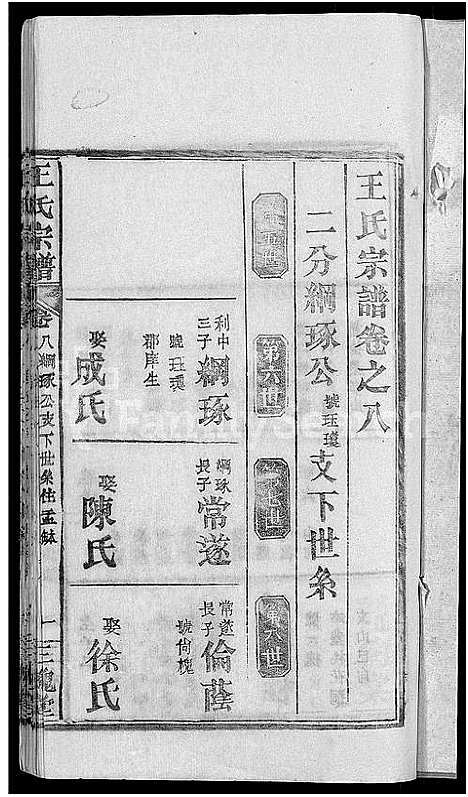 王氏宗譜卷之八
二分綱琢公號珏璜支下世系
第五世
第六世
第七世
第八世
利中三子綱琢
號珏璜
郡庠生
娶成氏
綱琢長子常遂
娶陳氏
常遂長子倫蔭
號尙槐
娶徐氏
王氏宗譜
卷八綱琢公支下世系住孟
一
三槐堂